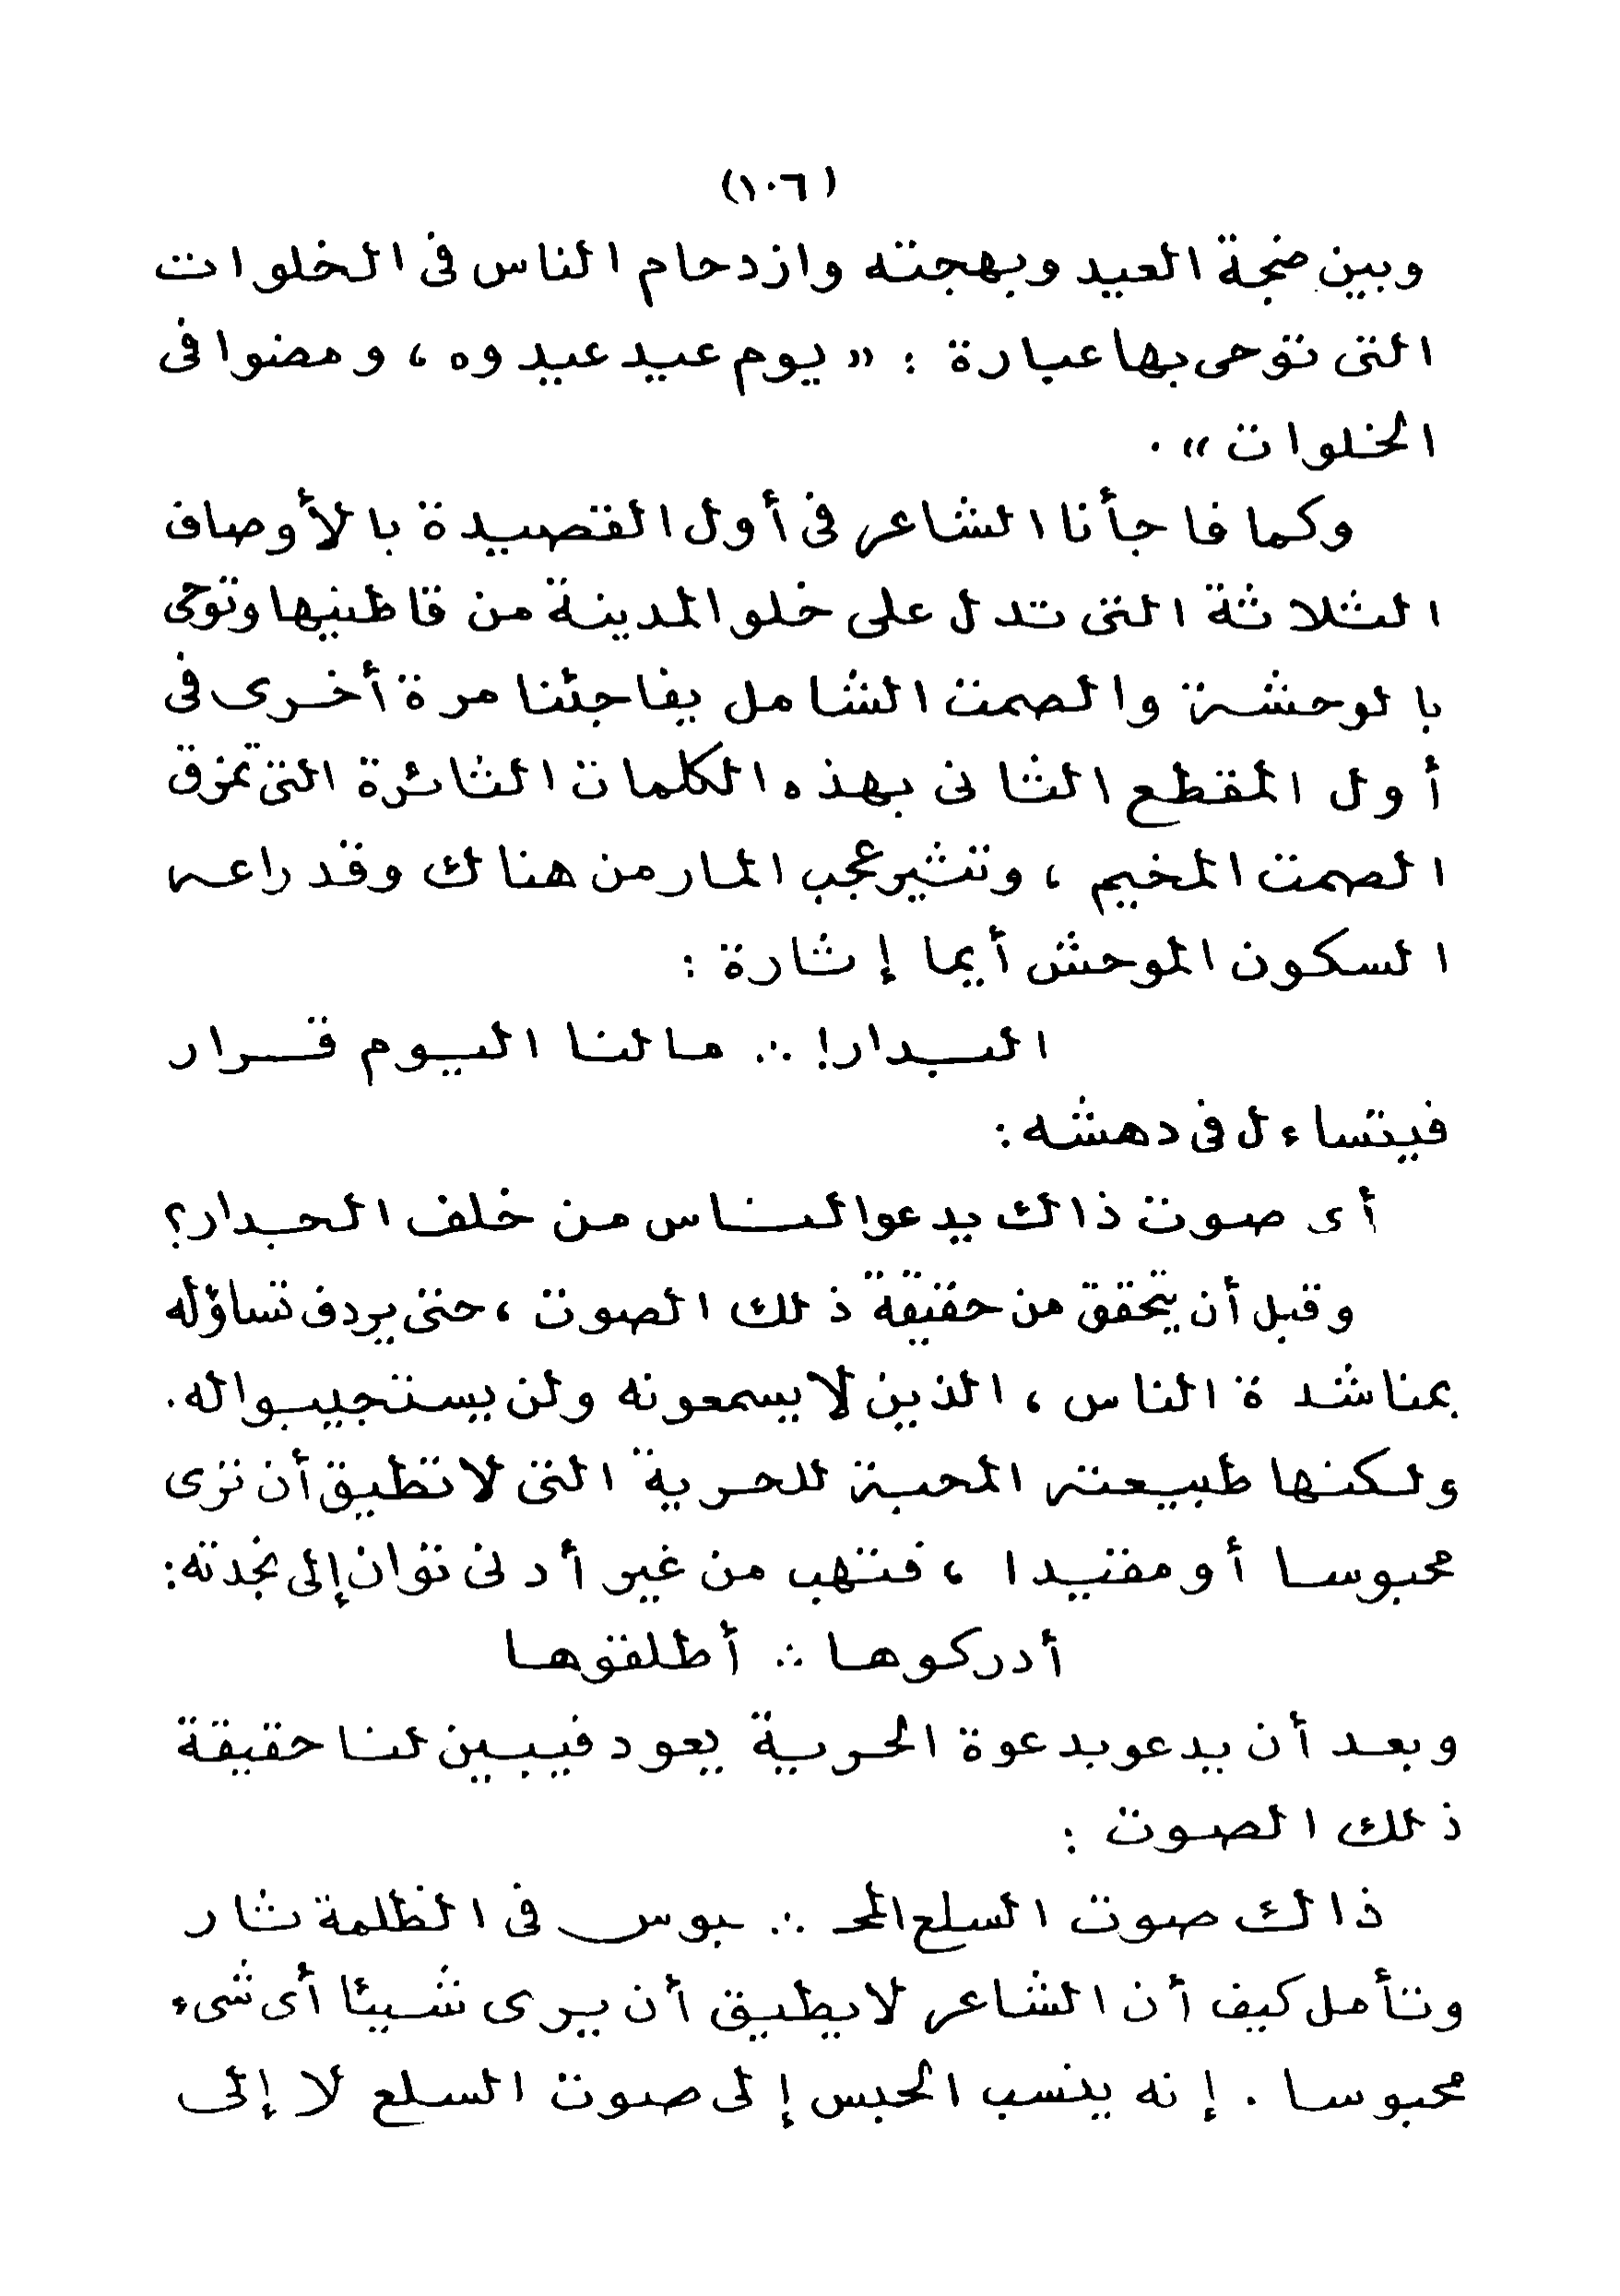 (١٠٦)
وبين ضجة العيد وبهجته وازدحام الناس فى الخلوات
التى توحى بها عبارة : « يوم عيد عيدوه ، ومضوا فى
الخلوات » .
وكما فاجأنا الشاعر فى أول القصيدة بالأوصاف
الثلاثة التى تدل على خلو المدينة من قاطنيها وتوحى
بالوحشة والصمت الشامل يفاجئنا مرة أخرى فى
أول المقطع الثانى بهذه الكلمات الثائرة التى تمزق
الصمت المخيم ، وتثير عجب المار من هناك وقد راعه
السكون الموحش أيما إثارة :
البدار! ∴ ما لنا اليوم قرار
فيتساءل فى دهشه :
أى صوت ذاك يدعو الناس من خلف الجدار؟
وقبل أن يتحقق من حقيقة ذلك الصوت ، حتى يردف تساؤله
بمناشدة الناس ، الذين لا يسمعونه ولن يستجيبوا له .
ولكنها طبيعته المحبة للحرية التى لا تطيق أن ترى
محبوسا أو مقيدا ، فتهب من غير أدنى توان إلى نجدته :
أدركوها ∴ أطلقوها
وبعد أن يدعو بدعوة الحرية يعود فيبين لنا حقيقة
ذلك الصوت :
ذاك صوت السلع المحـ ∴ ـبوس فى الظلمة ثار
وتأمل كيف أن الشاعر لا يطيق أن يرى شيئا أى شىء
محبوسا . إنه ينسب الحبس إلى صوت السلع لا إلى